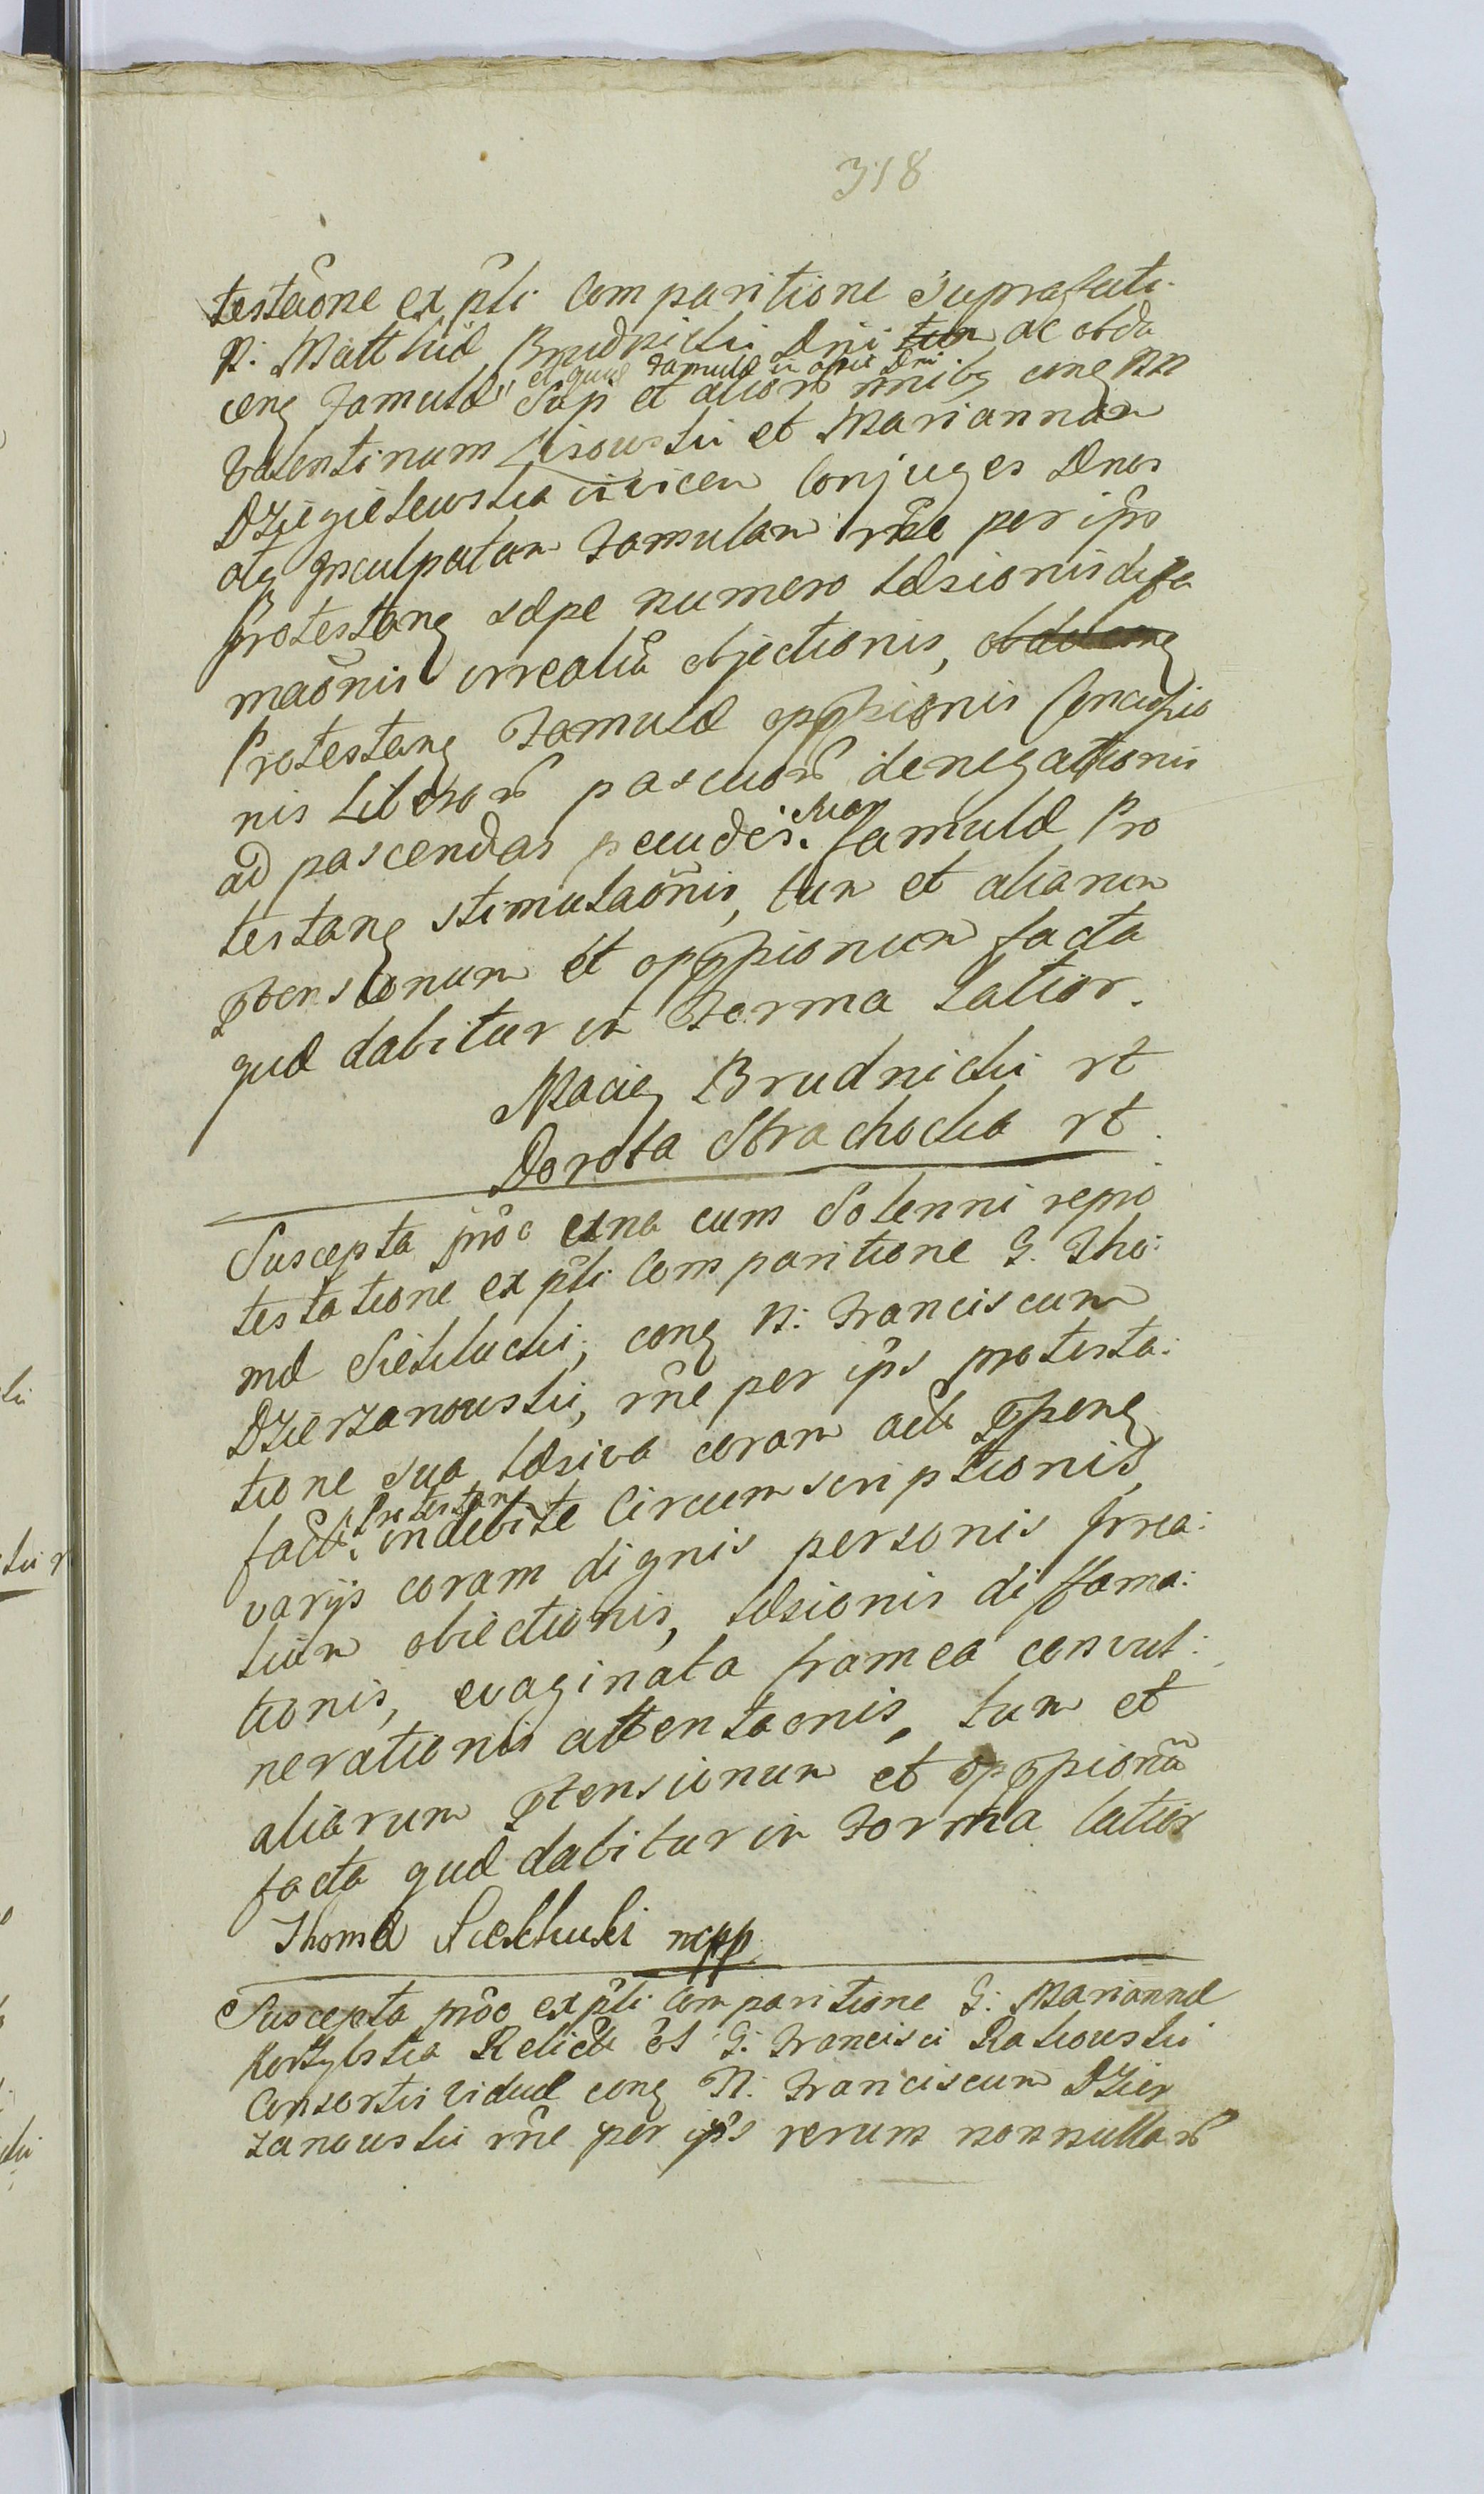 318
testãone ex pñti Comparitione suprafati
N: Matthiæ Brudnicki Dni tum ac obdu
cenꝫ Famulæ et quæ Famula in opere Dni
Sup et alior mnibꝫ conꝫ NN
Valentinum Lisowski et Mariannam
Dziegielewska invicem Conjuges Dnos
atꝫ Insculpatam Famulam rñe per ips
Protestanꝫ sæpe numero læsionis diffa
maõnis irrealiũ objectionis,
Protestanꝫ Famulæ oppssionis
nis Liberorũ pascuorũ denegationis
ad pascendas pecudes. suar famulæ Pro
testanꝫ stimulaõnis, tum et aliarum
ptensionum et oppssionum facta
quæ dabitur in Forma Latior.
Maciey Brudnicki rt
Dorota Strachocka rt.
Suscepta prôc una cum Solenni repro
testatione ex pñti Comparitione G. Tho:
mæ Siekluckj; conꝫ N: Franciscum
Dzierzanowski, rñe per ips protesta:
tione sua læsiva coram actis ppenꝫ
fact, Protestan indebite Circumscriptionis,
varijs coram dignis personis Irrea:
lium obiectionis, læsionis diffama:
tionis, evaginata framea convul:
nerationis attentaonis, tum et
aliarum ptensionum et oppssionũ
facta quæ dabitur in Forma latior
Thoma Siekluki mpp
Suscepta prôc ex pñti Comparitione G: Mariannæ
Korzybska Relictæ ol G: Francisci Rakowski
Consortis viduæ conꝫ N: Franciscum Dzier
zanowski rñe per ips rerum nonnullarũ